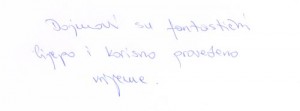 Dojmovi su fantastični
lijepo i korisno provedeno
vrijeme.